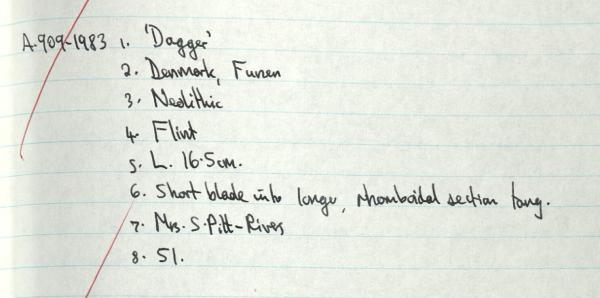 A.909-1983 1. 'Dagger'
2. Denmark, Funen
3. Neolithic
4. Flint
5. L. 16.5cm.
6. Short blade into longer, rhomboidal section tang.
7. Mrs. S. Pitt-Rivers
8. 51.